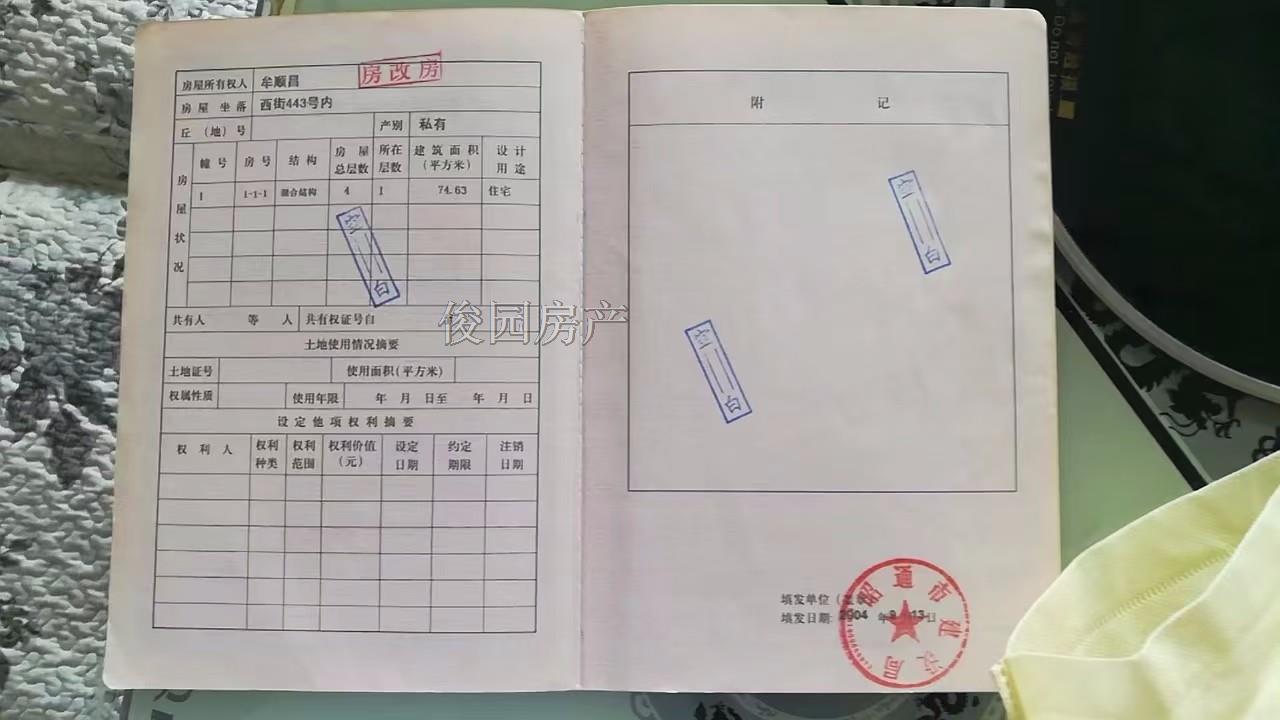 房屋所有权人 牟顺昌 房改房
房屋坐落 西街443号内
丘（地）号 产别 私有
房屋状况 幢号 房号 结构 房屋总层数 所在层数 建筑面积（平方米） 设计用途
1 1-1-1 混合结构 4 1 74.63 住宅
空白
共有人 等 人 共有权证号自
土地使用情况摘要
土地证号 使用面积(平方米)
权属性质 使用年限 年 月 日至 年 月 日
设定他项权利摘要
权利人 权利种类 权利范围 权利价值（元） 设定日期 约定期限 注销日期
俊园房产
附记
空白
空白
填发单位（
填发日期: 2004 年 9 13日
昭通市建设局
Do not